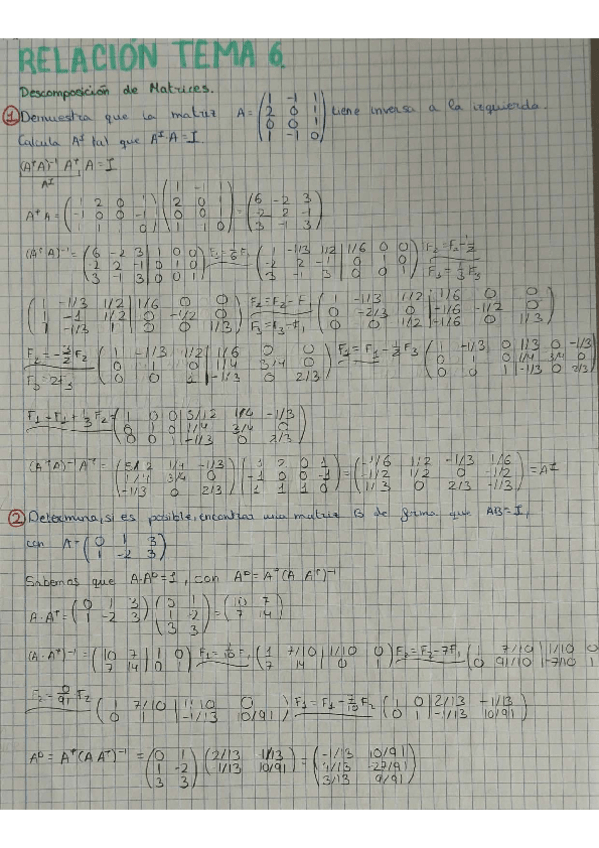 RELACIÓN TEMA 6.
Descomposición de Matrices.
① Demuestra que la matriz A = (1 -1 1; 2 0 1; 0 0 1; 1 -1 0) tiene inversa a la izquierda.
Calcula Aᴵ tal que Aᴵ·A = I.
(AᵗA)⁻¹ Aᵗ A = I
Aᴵ
1 2 0 1 | 1 -1 1 | 6 -2 3
AᵗA = -1 0 0 -1 | 2 0 1 | = -2 2 -1
1 1 1 0 | 0 0 1 | 3 -1 3
1 -1 0
(AᵗA)⁻¹ = (6 -2 3 | 1 0 0; -2 2 -1 | 0 1 0; 3 -1 3 | 0 0 1) (1 -1/3 1/2 | 1/6 0 0; -2 2 -1 | 0 1 0; 3 -1 3 | 0 0 1)
(1 -1/3 1/2 | 1/6 0 0; 1 -1 1/2 | 0 -1/2 0; 1 -1/3 1 | 0 0 1/3) F₂=F₂-F₁ F₃=F₃-F₁ (1 -1/3 1/2 | 1/6 0 0; 0 -2/3 0 | -1/6 -1/2 0; 0 0 1/2 | -1/6 0 1/3)
F₂=-3/2F₂ F₃=2F₃ (1 -1/3 1/2 | 1/6 0 0; 0 1 0 | 1/4 3/4 0; 0 0 1 | -1/3 0 2/3) F₁=F₁-1/2F₃ (1 -1/3 0 | 1/3 0 -1/3; 0 1 0 | 1/4 3/4 0; 0 0 1 | -1/3 0 2/3)
F₁=F₁+1/3F₂ (1 0 0 | 5/12 1/4 -1/3; 0 1 0 | 1/4 3/4 0; 0 0 1 | -1/3 0 2/3)
(AᵗA)⁻¹Aᵗ = (5/12 1/4 -1/3; 1/4 3/4 0; -1/3 0 2/3) (1 2 0 1; -1 0 0 -1; 1 1 1 0) = (-1/6 1/2 -1/3 1/6; -1/2 1/2 0 -1/2; 1/3 0 2/3 -1/3) = Aᴵ
② Determina, si es posible, encontrar una matriz B de forma que AB=I,
con A = (0 1 3; 1 -2 3)
Sabemos que A·Aᴰ=I, con Aᴰ=Aᵗ(A Aᵗ)⁻¹
A·Aᵗ = (0 1 3; 1 -2 3) (0 1; 1 -2; 3 3) = (10 7; 7 14)
(A·Aᵗ)⁻¹ = (10 7 | 1 0; 7 14 | 0 1) F₁=1/10F₁ (1 7/10 | 1/10 0; 7 14 | 0 1) F₂=F₂-7F₁ (1 7/10 | 1/10 0; 0 91/10 | -7/10 1)
F₂=10/91F₂ (1 7/10 | 1/10 0; 0 1 | -1/13 10/91) F₁=F₁-7/10F₂ (1 0 | 2/13 -1/13; 0 1 | -1/13 10/91)
Aᴰ = Aᵗ(A Aᵗ)⁻¹ = (0 1; 1 -2; 3 3) (2/13 -1/13; -1/13 10/91) = (-1/13 10/91; 4/13 -27/91; 3/13 9/91)